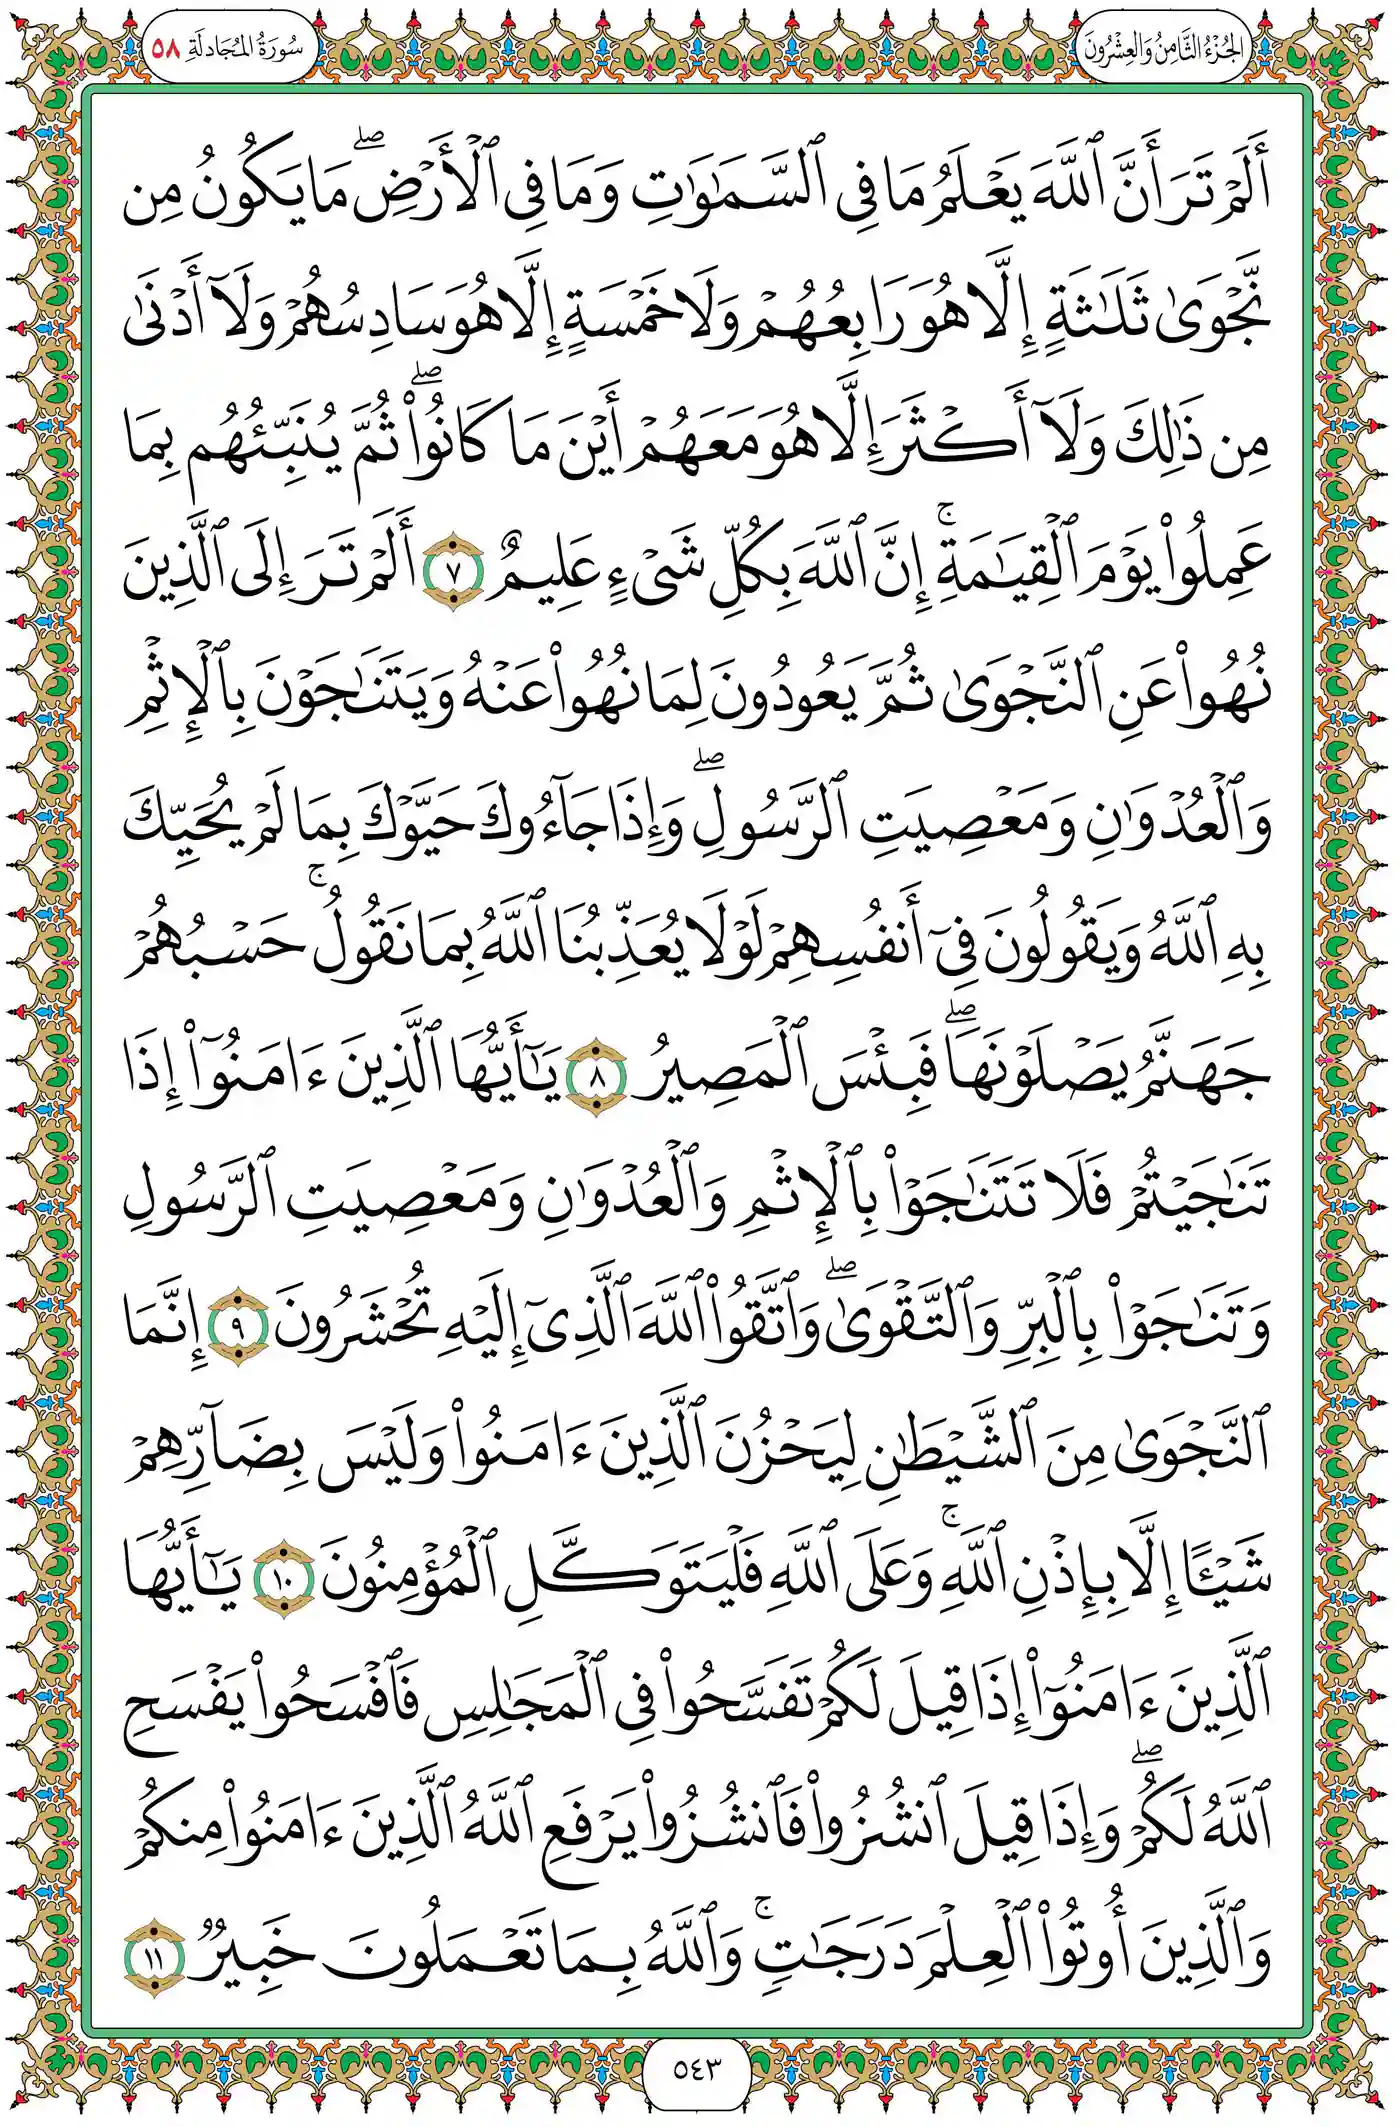 الجُزْءُ الثَّامِنُ وَالعِشْرُونَ
سُورَةُ المُجَادلَةِ ٥٨
أَلَمْ تَرَ أَنَّ ٱللَّهَ يَعْلَمُ مَا فِى ٱلسَّمَـٰوَٰتِ وَمَا فِى ٱلْأَرْضِ ۖ مَا يَكُونُ مِن
نَّجْوَىٰ ثَلَـٰثَةٍ إِلَّا هُوَ رَابِعُهُمْ وَلَا خَمْسَةٍ إِلَّا هُوَ سَادِسُهُمْ وَلَآ أَدْنَىٰ
مِن ذَٰلِكَ وَلَآ أَكْثَرَ إِلَّا هُوَ مَعَهُمْ أَيْنَ مَا كَانُوا۟ ۖ ثُمَّ يُنَبِّئُهُم بِمَا
عَمِلُوا۟ يَوْمَ ٱلْقِيَـٰمَةِ ۚ إِنَّ ٱللَّهَ بِكُلِّ شَىْءٍ عَلِيمٌ ٧ أَلَمْ تَرَ إِلَى ٱلَّذِينَ
نُهُوا۟ عَنِ ٱلنَّجْوَىٰ ثُمَّ يَعُودُونَ لِمَا نُهُوا۟ عَنْهُ وَيَتَنَـٰجَوْنَ بِٱلْإِثْمِ
وَٱلْعُدْوَٰنِ وَمَعْصِيَتِ ٱلرَّسُولِ ۖ وَإِذَا جَآءُوكَ حَيَّوْكَ بِمَا لَمْ يُحَيِّكَ
بِهِ ٱللَّهُ وَيَقُولُونَ فِىٓ أَنفُسِهِمْ لَوْلَا يُعَذِّبُنَا ٱللَّهُ بِمَا نَقُولُ ۚ حَسْبُهُمْ
جَهَنَّمُ يَصْلَوْنَهَا ۖ فَبِئْسَ ٱلْمَصِيرُ ٨ يَـٰٓأَيُّهَا ٱلَّذِينَ ءَامَنُوٓا۟ إِذَا
تَنَـٰجَيْتُمْ فَلَا تَتَنَـٰجَوْا۟ بِٱلْإِثْمِ وَٱلْعُدْوَٰنِ وَمَعْصِيَتِ ٱلرَّسُولِ
وَتَنَـٰجَوْا۟ بِٱلْبِرِّ وَٱلتَّقْوَىٰ ۖ وَٱتَّقُوا۟ ٱللَّهَ ٱلَّذِىٓ إِلَيْهِ تُحْشَرُونَ ٩ إِنَّمَا
ٱلنَّجْوَىٰ مِنَ ٱلشَّيْطَـٰنِ لِيَحْزُنَ ٱلَّذِينَ ءَامَنُوا۟ وَلَيْسَ بِضَآرِّهِمْ
شَيْـًٔا إِلَّا بِإِذْنِ ٱللَّهِ ۚ وَعَلَى ٱللَّهِ فَلْيَتَوَكَّلِ ٱلْمُؤْمِنُونَ ١٠ يَـٰٓأَيُّهَا
ٱلَّذِينَ ءَامَنُوٓا۟ إِذَا قِيلَ لَكُمْ تَفَسَّحُوا۟ فِى ٱلْمَجَـٰلِسِ فَٱفْسَحُوا۟ يَفْسَحِ
ٱللَّهُ لَكُمْ ۖ وَإِذَا قِيلَ ٱنشُزُوا۟ فَٱنشُزُوا۟ يَرْفَعِ ٱللَّهُ ٱلَّذِينَ ءَامَنُوا۟ مِنكُمْ
وَٱلَّذِينَ أُوتُوا۟ ٱلْعِلْمَ دَرَجَـٰتٍ ۚ وَٱللَّهُ بِمَا تَعْمَلُونَ خَبِيرٌ ١١
٥٤٣